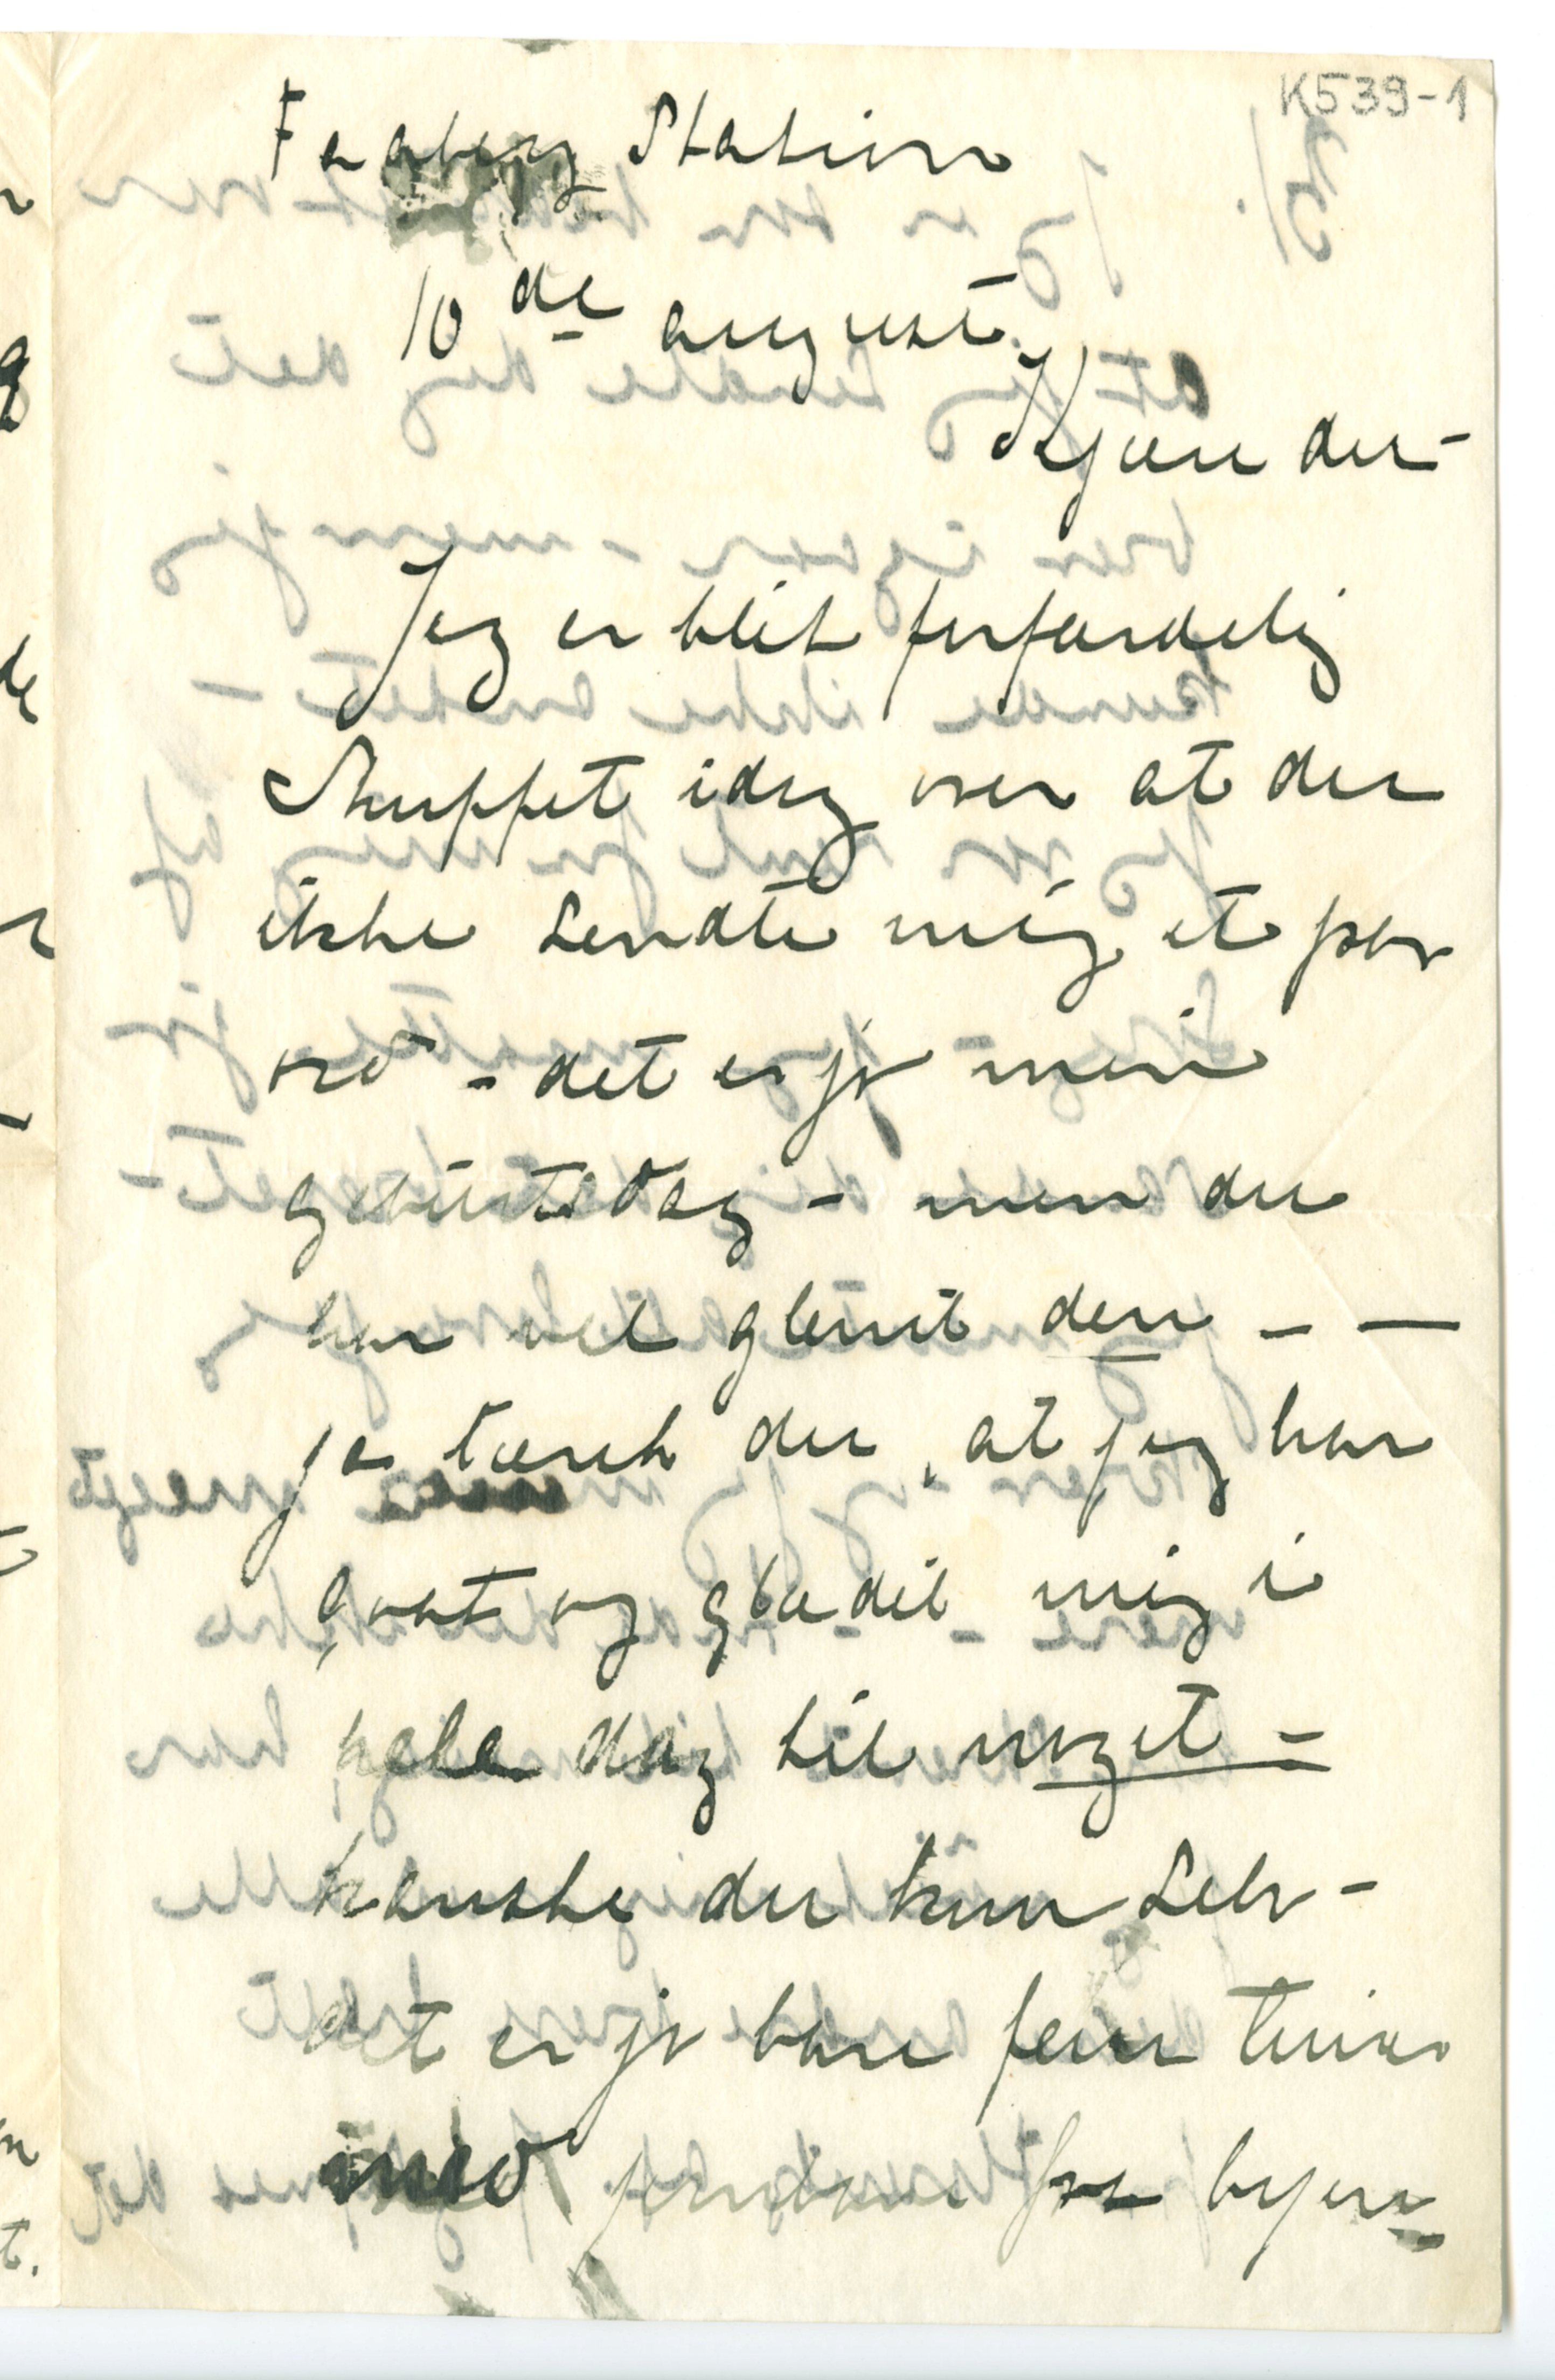 K539-1
Faaberg Station
10de august.
Kjære du-
Jeg er blit forfærdelig
skuffet idag over at du
ikke sendte mig et par
ord - det er jo min
geburtsdag - men du
har vel glemt den - —
ja tænk du, at jeg har
gaat og glædet mig i
hele dag til noget -
kanske du kom selv -
det er jo bare fem timer
med fra byen -